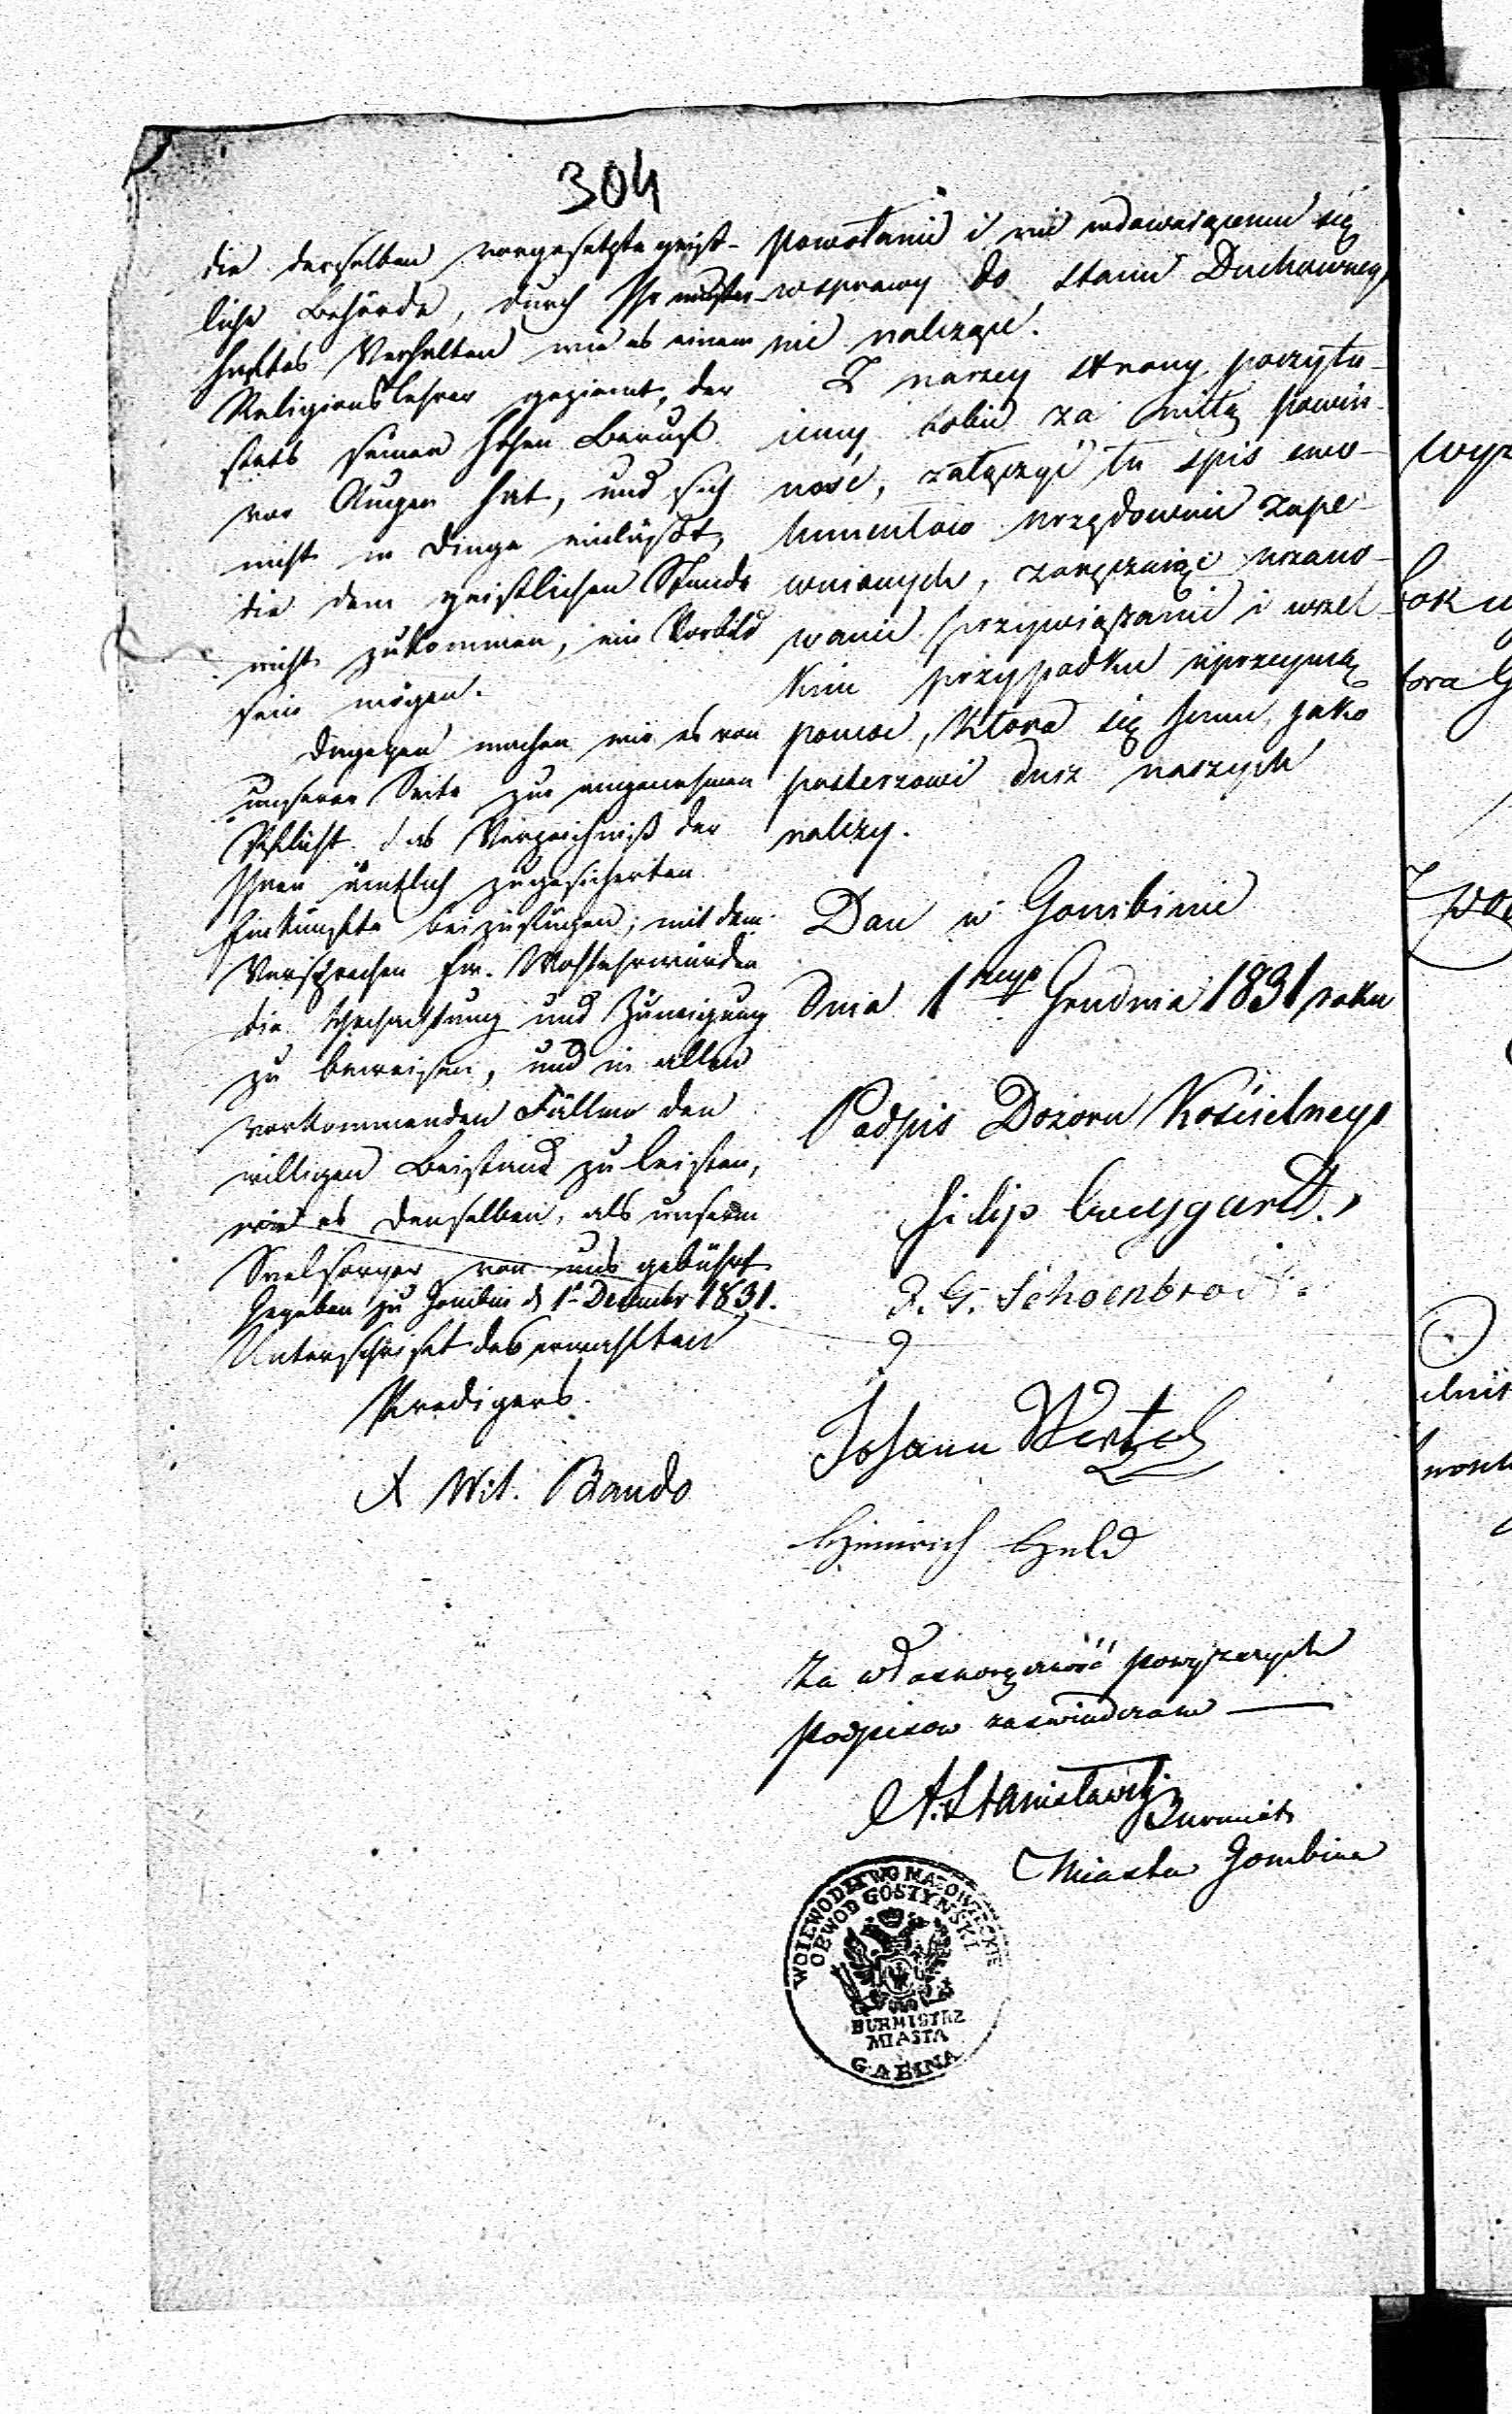 304
die derselben vorgesetzte geist-
liche Behörde, durch Ihr muster-
haftes Verhalten wie es einem
Religionslehrer geziemt, der
stets seinen hohen Beruf
vor Augen hat, und sich
nicht in Dinge einläßt,
die dem geistlichen Stande
nicht zukommen, ein Vorbild
sein mögen.
Dagegen machen wir es von
unserer Seite zur angenehmen
Pflicht das Verzeichniß der
Ihnen ämtlich zugesicherten
Einkünfte beizufügen; mit dem
Versprechen Ew. Wohlehrwürden
die Hochachtung und Zuneigung
zu beweisen, und in allen
vorkommenden Fällen den
willigen Beistand zu leisten,
wie es denselben, als unserm
Seelsorger von uns gebührt
Gegeben zu Gombin d 1t Decembr 1831.
Unterschrift des erwählten
Predigers.
X Wil. Bando
powołaniu i nie wdawaiącemu się
w sprawy do stanu Duchownego
nie należące.
Z naszey strony poczytu-
iemy sobie za miłą powin-
ność, załączyć tu spis emo-
lumentow urzędownie zape-
wnionych, zaręczaiąc uszano-
wanie przywiązanie i wszel-
kim przypadku uprzeymą
pomoc, ktora się Jemu jako
pasterzowi dusz naszych
należy.
Dan w Gombinie
dnia 1 Grudnia 1831 roku
Podpis Dozoru Kościelnego
Filip
J. G. Schoenbrod
Johann
Heinrich Held
Za własnoręczność powyższych
podpisow zaswiadczam
A. Stanisławski
Burmistrz
Miasta Gombina
WOIEWODZTWO MAZOWIECKIE
OBWOD GOSTYNSKI
BURMISTRZ
MIASTA
GABINA